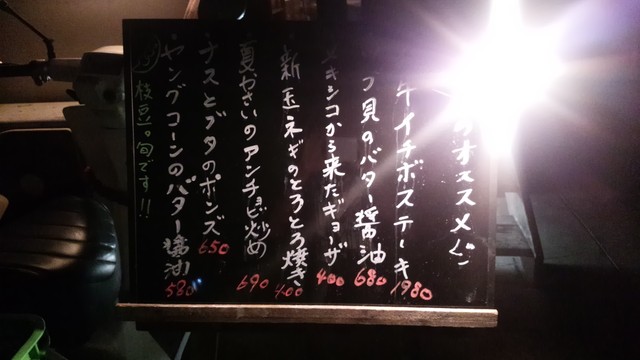 のオススメ
牛イチボステーキ 1980
つ貝のバター醤油 680
メキシコから来たギョーザ 400
新玉ネギのとろとろ焼き 400
夏やさいのアンチョビ炒め 690
ナスとブタのポンズ 650
ヤングコーンのバター醤油 580
枝豆。旬です!!